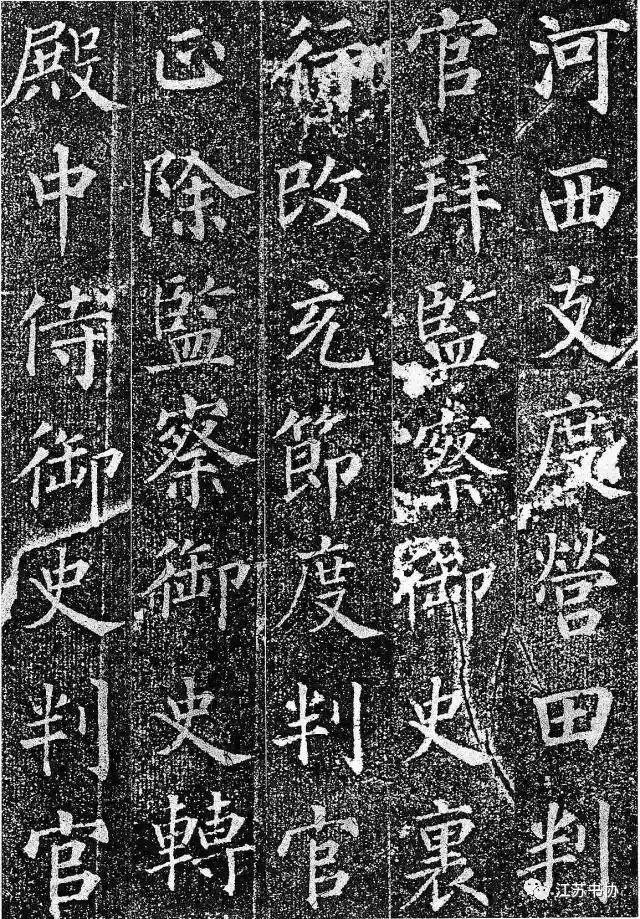 河西支度營田判
官拜監察御史裏
行改充節度判官
正除監察御史轉
殿中侍御史判官
江苏书协